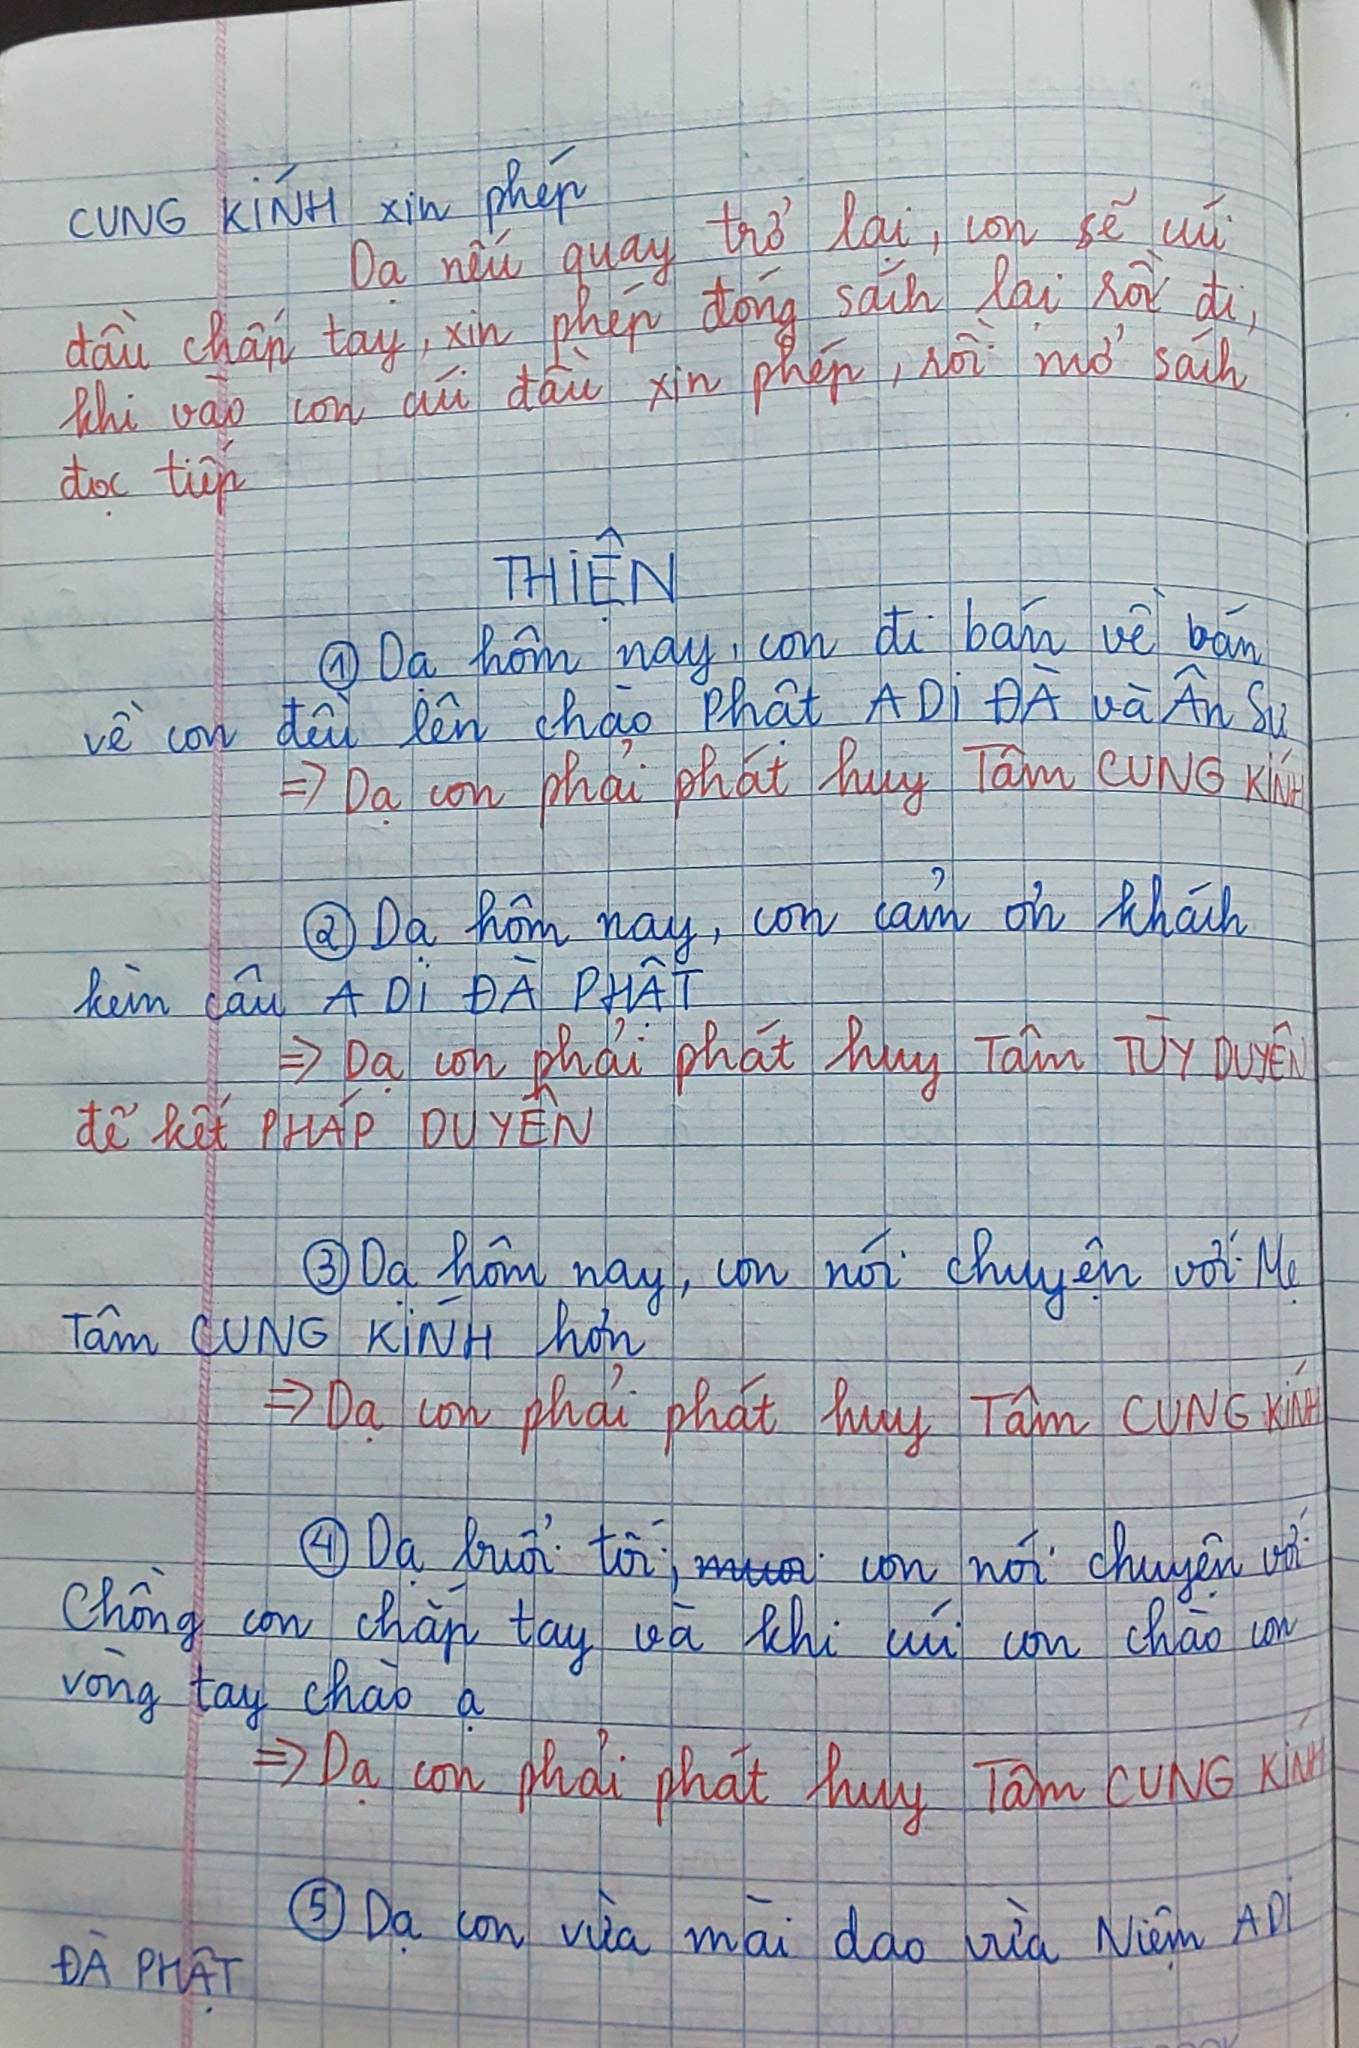 CUNG KÍNH xin phép
Dạ nếu quay trở lại, con sẽ cúi
đầu chấp tay, xin phép đóng sách lại rồi đi,
khi vào con cúi đầu xin phép, rồi mở sách
đọc tiếp
THIỆN
① Dạ hôm nay, con đi bán về bán
về con đều lên chào Phật A DI ĐÀ và Ân Sư
=> Dạ con phải phát huy Tâm CUNG KÍNH
② Dạ hôm nay, con cảm ơn khách
kèm câu A DI ĐÀ PHẬT
=> Dạ con phải phát huy Tâm TÙY DUYÊN
để kết PHÁP DUYÊN
③ Dạ hôm nay, con nói chuyện với Mẹ
Tâm CUNG KÍNH hơn
=> Dạ con phải phát huy Tâm CUNG KÍNH
④ Dạ buổi tối, con nói chuyện với
Chồng con chắp tay và khi cúi con chào con
vòng tay chào ạ
=> Dạ con phải phát huy Tâm CUNG KÍNH
⑤ Dạ con vừa mài dao vừa Niệm A DI
ĐÀ PHẬT